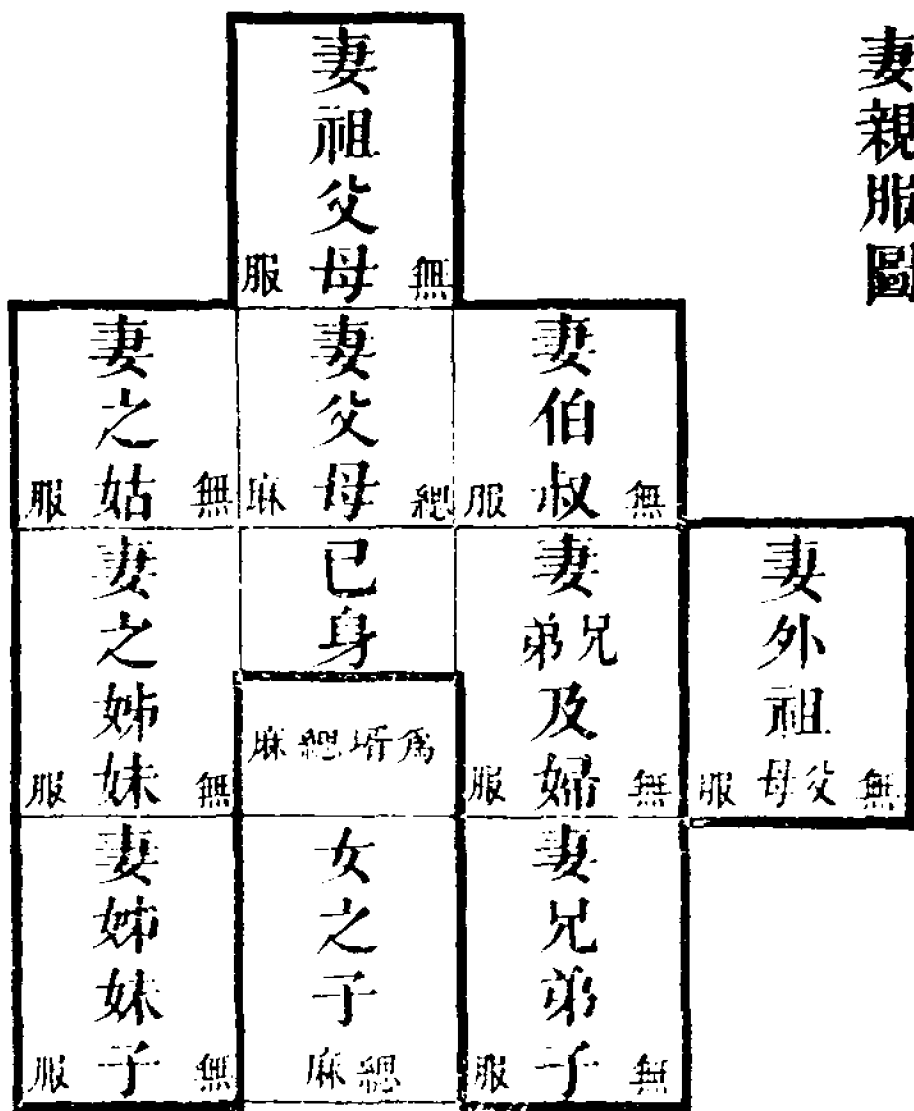 妻親服圖
妻祖父母
無服
妻伯叔
無服
妻父母
緦麻
妻之姑
無服
妻外祖父母
無服
妻兄弟及婦
無服
己身
為壻緦麻
妻之姊妹
無服
妻兄弟子
無服
女之子
緦麻
妻姊妹子
無服